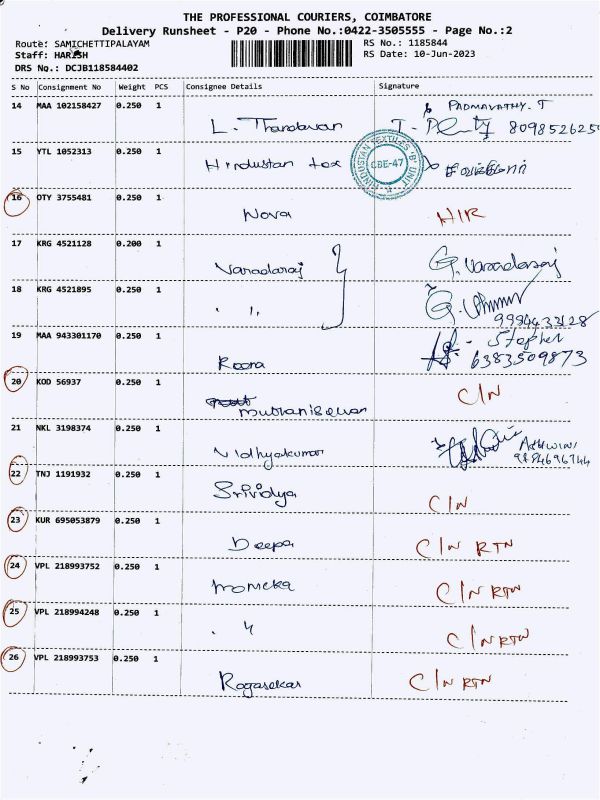 THE PROFESSIONAL COURIERS, COIMBATORE
Delivery Runsheet - P20 - Phone No.:0422-3505555 - Page No.:2
Route: SAMICHETTIPALAYAM
RS No.: 1185844
Staff: HARISH
RS Date: 10-Jun-2023
DRS No.: DCJB118584402
S No Consignment No Weight PCS Consignee Details Signature
14 MAA 102158427 0.250 1
PADMAVATHY. T
L. Thandavan T. 809852625
15 YTL 1052313 0.250 1
Hindustan tex
HINDUSTAN TEXTILES 'B' UNIT
CBE-47
16 OTY 3755481 0.250 1
Nova H/R
17 KRG 4521128 0.200 1
Varadaraj G. Varadaraj
18 KRG 4521895 0.250 1
" G.
9994433128
19 MAA 943301170 0.250 1
Stephen
Roona 6383509873
20 KOD 56937 0.250 1
C/N
21 NKL 3198374 0.250 1
Vidhyakumar
22 TNJ 1191932 0.250 1
Srividya C/N
23 KUR 695053879 0.250 1
Deepa C/N RTN
24 VPL 218993752 0.250 1
C/N RTN
25 VPL 218994248 0.250 1
C/N RTN
26 VPL 218993753 0.250 1
Rogasekar C/N RTN